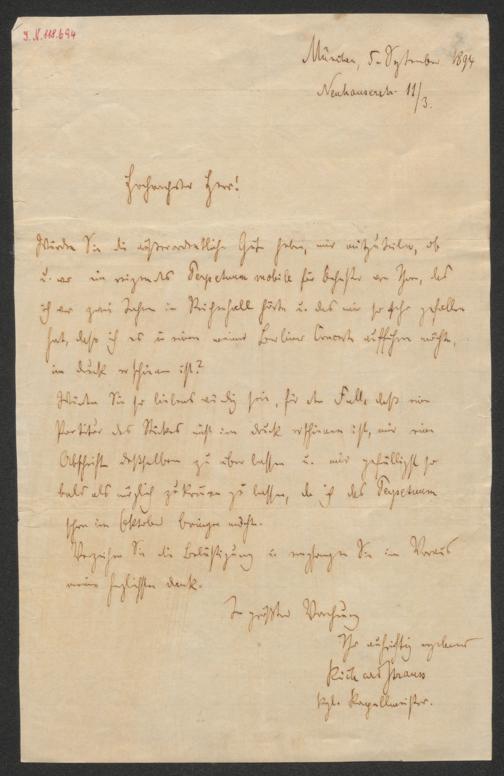 I.N. 118.694
München, 5. September 1894
Neuhauserstr. 11/3.
Hochgeehrter Herr!
Würden Sie die außerordentliche Güte haben, mir mitzuteilen, ob
u. wo ein reizendes Perpetuum mobile für Orchester von Ihnen, das
ich vor zwei Jahren in Reichenhall hörte u. das mir so sehr gefallen
hat, daß ich es in einem meiner Berliner Concerte aufführen möchte,
im Druck erschienen ist?
Würden Sie so liebenswürdig sein, für den Fall, daß eine
Partitur des Stückes nicht im Druck erschienen ist, mir eine
Abschrift desselben zu überlassen u. mir gefälligst so
bald als möglich zukommen zu lassen, da ich das Perpetuum
schon im Oktober bringen möchte.
Verzeihen Sie die Belästigung u. empfangen Sie im Voraus
meinen herzlichsten Dank.
In größter Verehrung
Ihr aufrichtig ergebener
Richard Strauss
kgl. Kapellmeister.